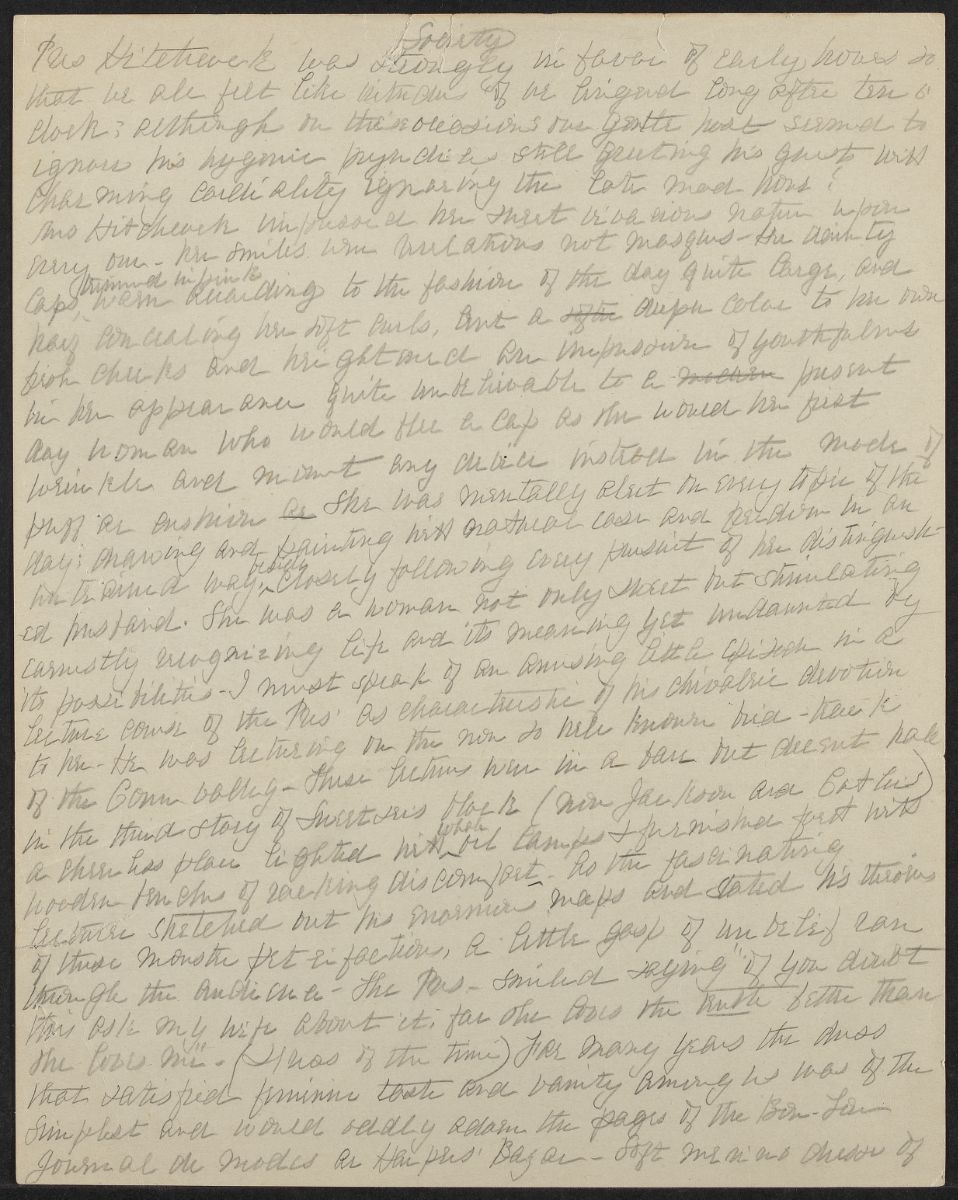 Society
Pres Hitchcock was strongly in favor of early hours so
that we all felt like intruders if we lingered long after ten o'
clock: although on these occasions our gentle host seemed to
ignore his hygenic prejudices still greeting his guests with
charming cordiality ignoring the late mad hour!
Mrs Hitchcock impressed her sweet vivacious nature upon
every one - her smiles were revelations not masques - the dainty
trimmed in pink
caps, worn according to the fashion of the day quite large, and
half concealing her soft curls, lent a softer deeper color to her own
fresh cheeks and heightened an impression of youthfulness
in her appearance quite unbelievable to a modern present
day woman who would flee a cap as she would her first
wrinkle and mount any device instead in the mode of
puff or cushion as She was mentally alert on every topic of the
day: drawing and painting with natural ease and freedom in an
untrained way, besides closely following every pursuit of her distinguish-
ed husband. She was a woman not only sweet but stimulating
earnestly recognizing life and its meaning yet undaunted by
its possibilities - I must speak of an amusing little episode in a
lecture course of the Pres' as characteristic of his chivalric devotion
to her - He was lecturing on the now so well known bird-track
of the Conn valley - These lectures were in a bare but decent hall
in the third story of Sweetsers block (now Jackson and Cutler's)
a cheerless place lighted with whale oil lamps & furnished forth with
wooden benches of racking discomfort - As the fascinating
lecturer sketched out his enormous maps and stated his theories
of these monster petrifactions, a little gasp of unbelief ran
through the audience - The Pres - smiled saying "if you doubt
this ask my wife about it: for she loves the truth better than
she loves me" - (I was of the time) For many years the dress
that satisfied feminine taste and vanity among us was of the
simplest and would oddly adorn the pages of the Bon-Ton
Journal de modes or Harpers' Bazar - Soft merino dresses of